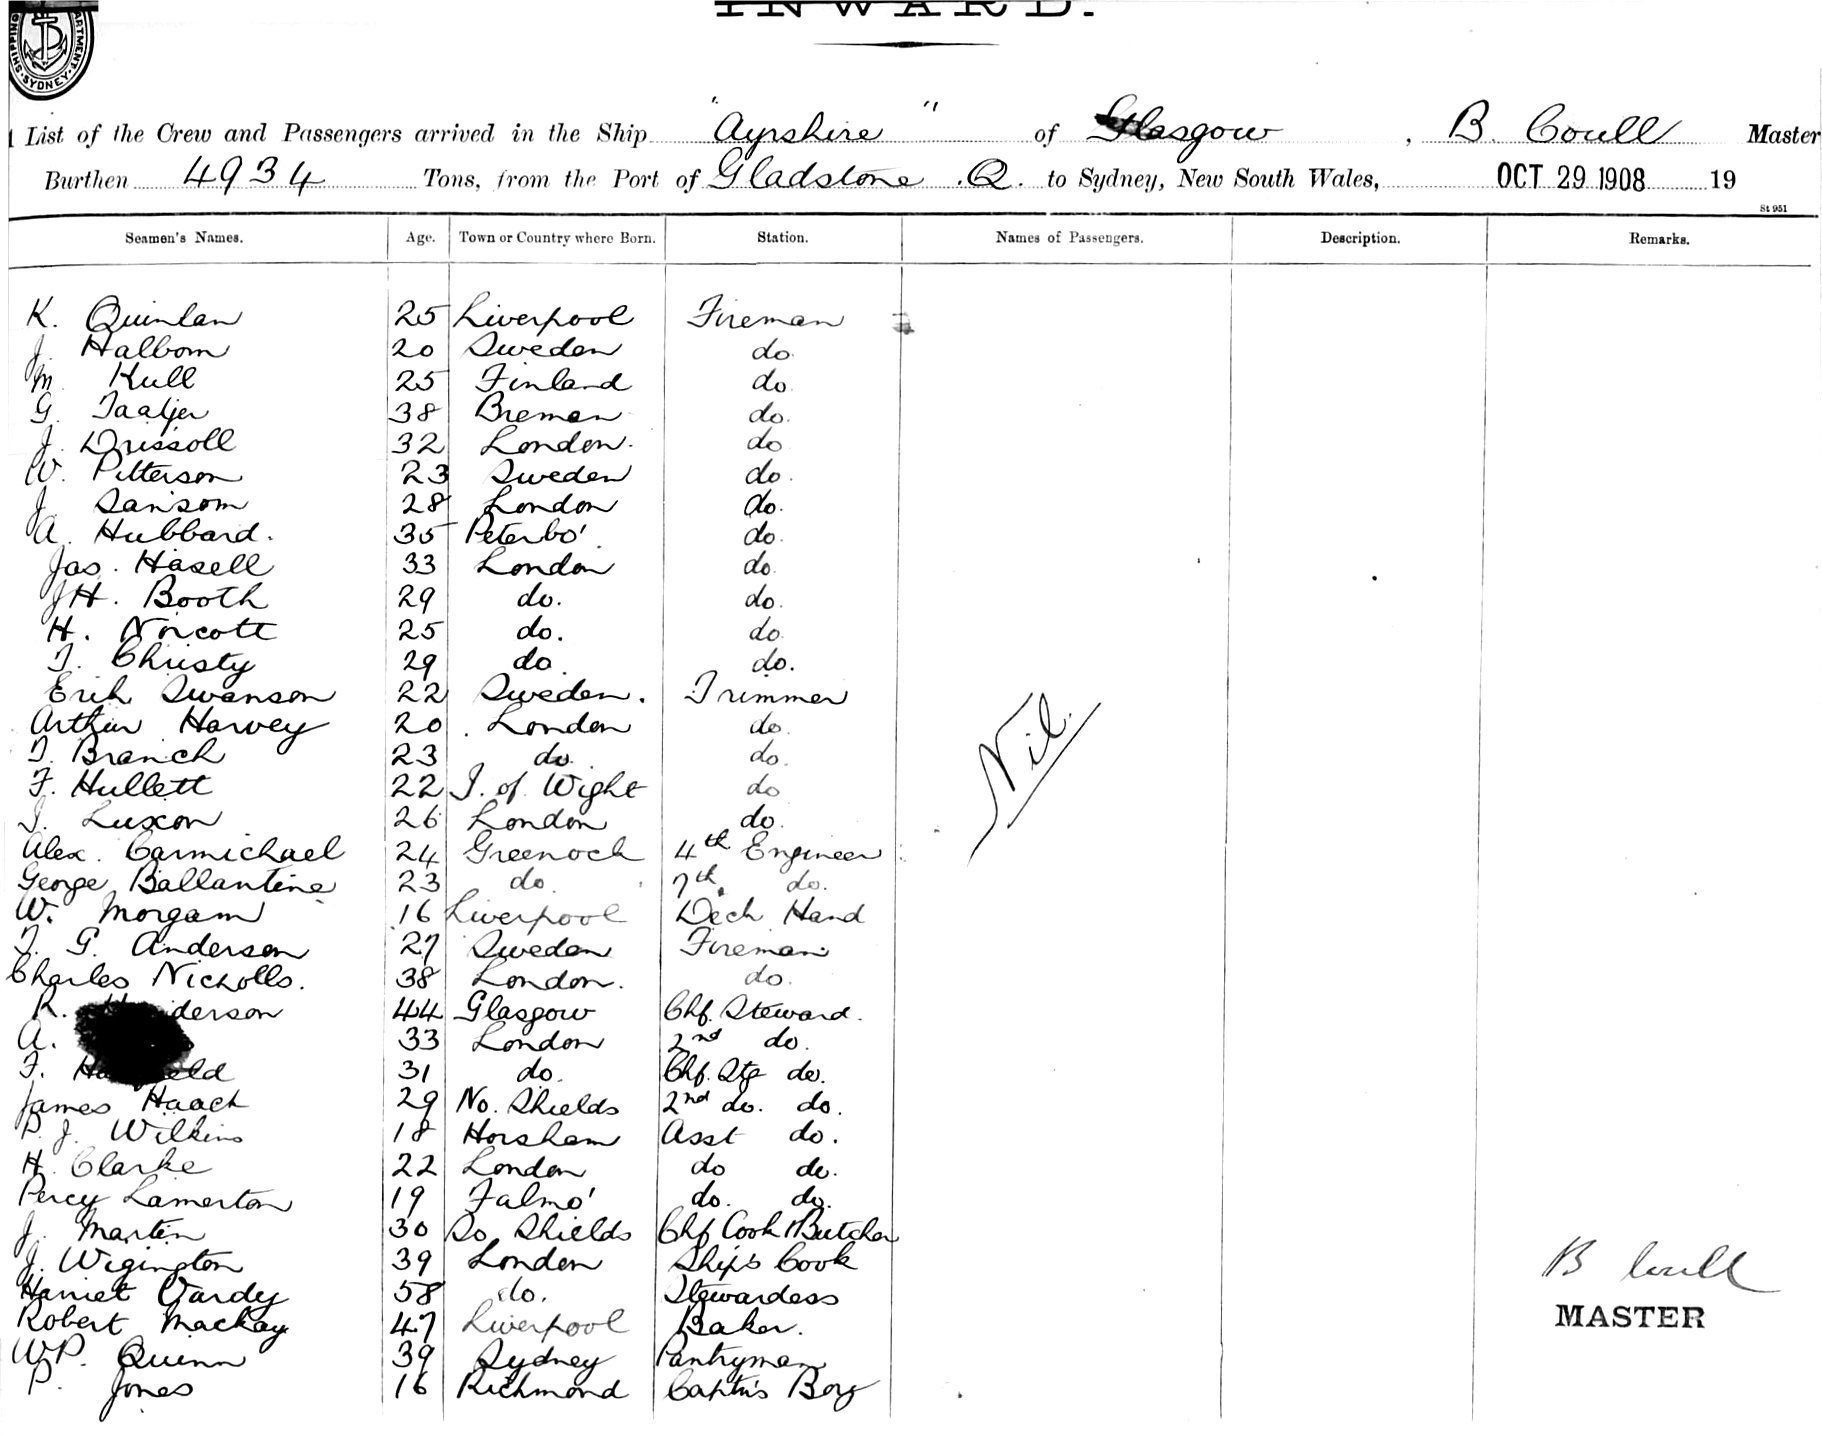 INWARD.
SHIPPING DEPARTMENT. SYDNEY.
List of the Crew and Passengers arrived in the Ship "Ayrshire" of Glasgow, B. Coull Master
Burthen 4934 Tons, from the Port of Gladstone Q. to Sydney, New South Wales, OCT 29 1908 19
St 951
Seamen's Names. Age. Town or Country where Born. Station. Names of Passengers. Description. Remarks.
K. Quinlan 25 Liverpool Fireman
J. Halbom 20 Sweden do.
M. Kull 25 Finland do.
G. Taaljer 38 Bremen do.
J. Drissoll 32 London. do
W. Pitterson 23 Sweden do.
J. Sansom 28 London do.
A. Hubbard. 35 Peterbo' do.
Jas. Hasell 33 London do.
JH. Booth 29 do. do.
H. Norcott 25 do. do.
T. Christy 29 do. do.
Erik Swanson 22 Sweden. Trimmer
Arthur Harvey 20 London do.
T. Branch 23 do. do.
F. Hullett 22 I. of Wight do
J. Luxon 26 London do.
Nil.
Alex. Carmichael 24 Greenock 4th Engineer
George Ballantine 23 do. 7th do.
W. Morgam 16 Liverpool Deck Hand
T. G. Anderson 27 Sweden Fireman
Charles Nicholls. 38 London. do.
R. 44 Glasgow Chf. Steward.
A. 33 London 2nd do.
F. 31 do. Chf. Stg do.
James Haack 29 No. Shields 2nd do. do.
P. J. Wilkins 18 Horsham Asst do.
H. Clarke 22 London do do.
Percy Lamerton 19 Falmo' do. do.
J. Martin 30 So Shields Chf Cook & Butcher
J. Wigington 39 London Ship's Cook
Harriet Vardy 58 do. Stewardess
Robert Mackay 47 Liverpool Baker.
W.P. Quinn 39 Sydney Pantryman
P. Jones 16 Richmond Captn's Boy
B Coull
MASTER